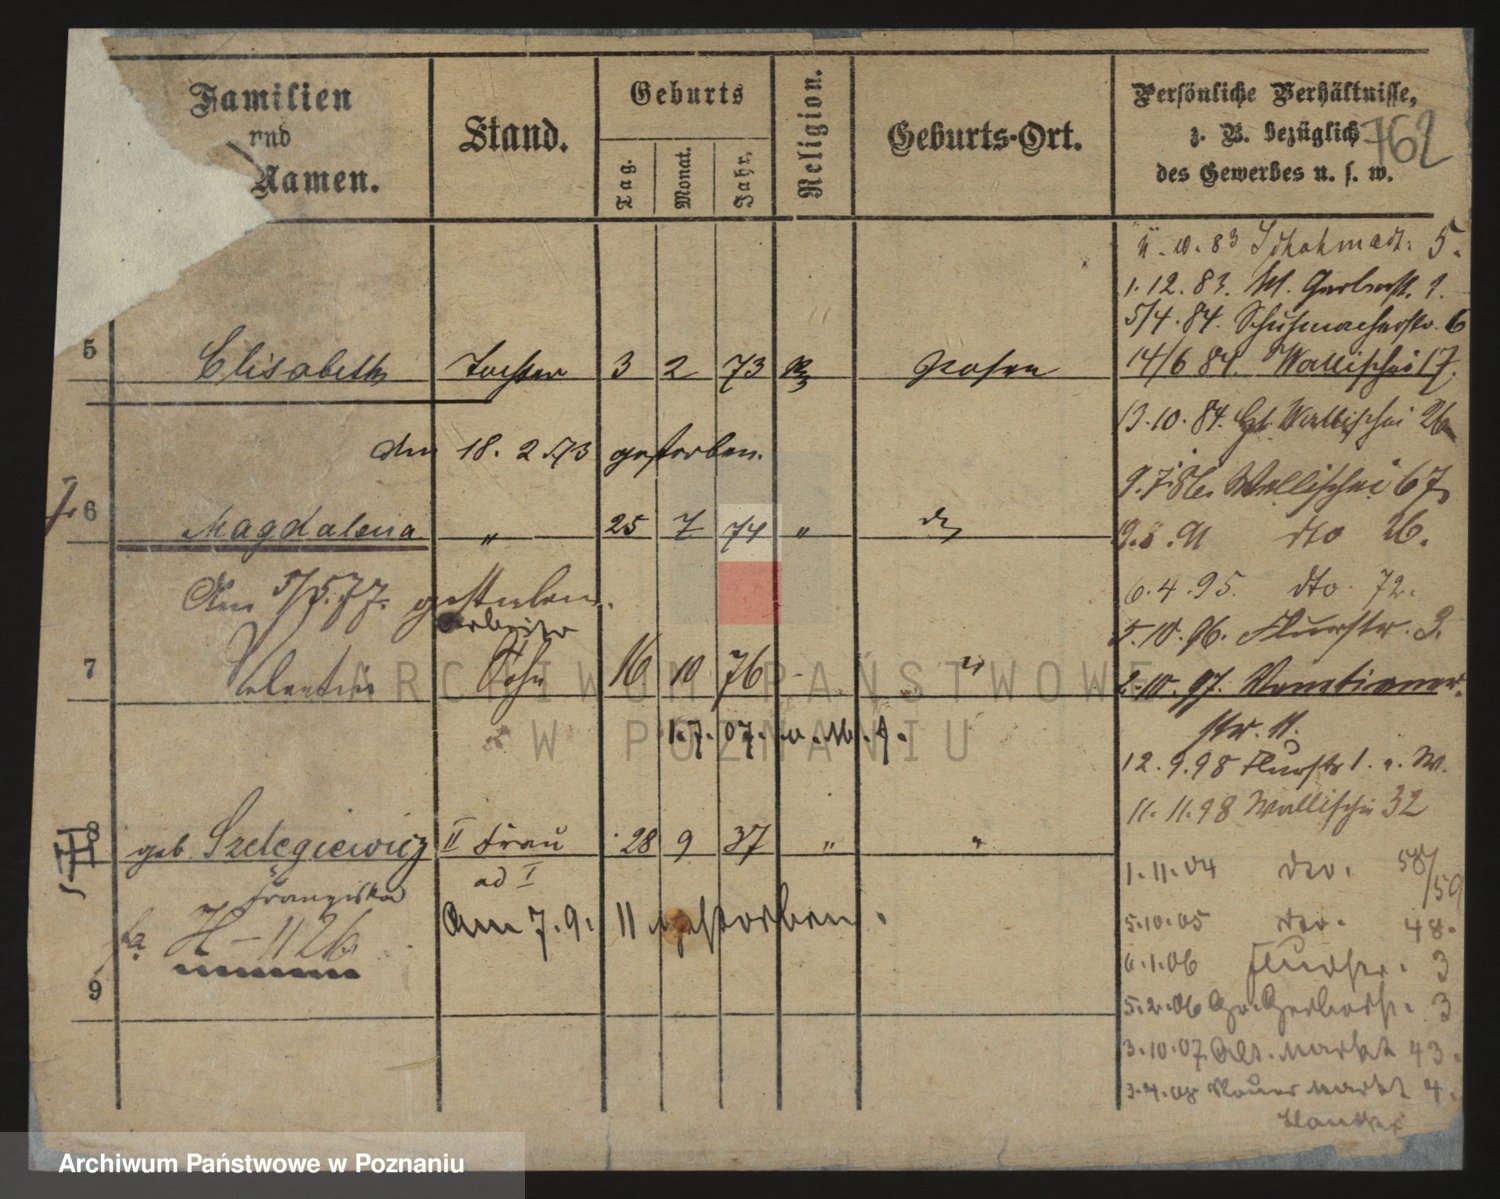 Familien
und
Namen.
Stand.
Geburts
Tag.
Monat.
Jahr.
Religion.
Geburts-Ort.
Persönliche Verhältnisse,
z. B. bezüglich
des Gewerbes u. s. w.
762
10. 83 5.
1. 12. 83. Kl. Gerberstr. 9.
5/4. 84. Schuhmacherstr. 6
5 Elisabeth Tochter 3 2 73 Posen
14/6 84. Wallischei 17.
13. 10. 84. Wallischei 26
den 18. 2 73 gestorben.
9. 7. 86. Wallischei 67
6 Magdalena " 25 7 74 " do
91 dto 26.
Am 5/5. 77. gestorben.
6. 4. 95. dto. 72.
Arbeiter
5. 10. 96. Flurstr. 3.
7 Valentin Sohn 16 10 76 "
2. 10. 97. Venetianer-
str. 11.
1. 7. 07. a. M. 9.
12. 9. 98 Flurstr 1. a. W.
11. 11. 98 Wallischei 32
8 geb. Szelegiewicz II Frau 28 9 37 " "
ad I
Franziska
1. 11. 04 dto. 58/59
Am 7. 9. 11 gestorben.
H-1126
5. 10. 05 dto. 48.
6. 1. 06 Flurstr. 3
9
5. 2. 06 Gr. Gerberstr. 3
3. 10. 07. Alt. Markt 43.
3. 4. 08 Neuer Markt 4.
ARCHIWUM PAŃSTWOWE
W POZNANIU
Archiwum Państwowe w Poznaniu